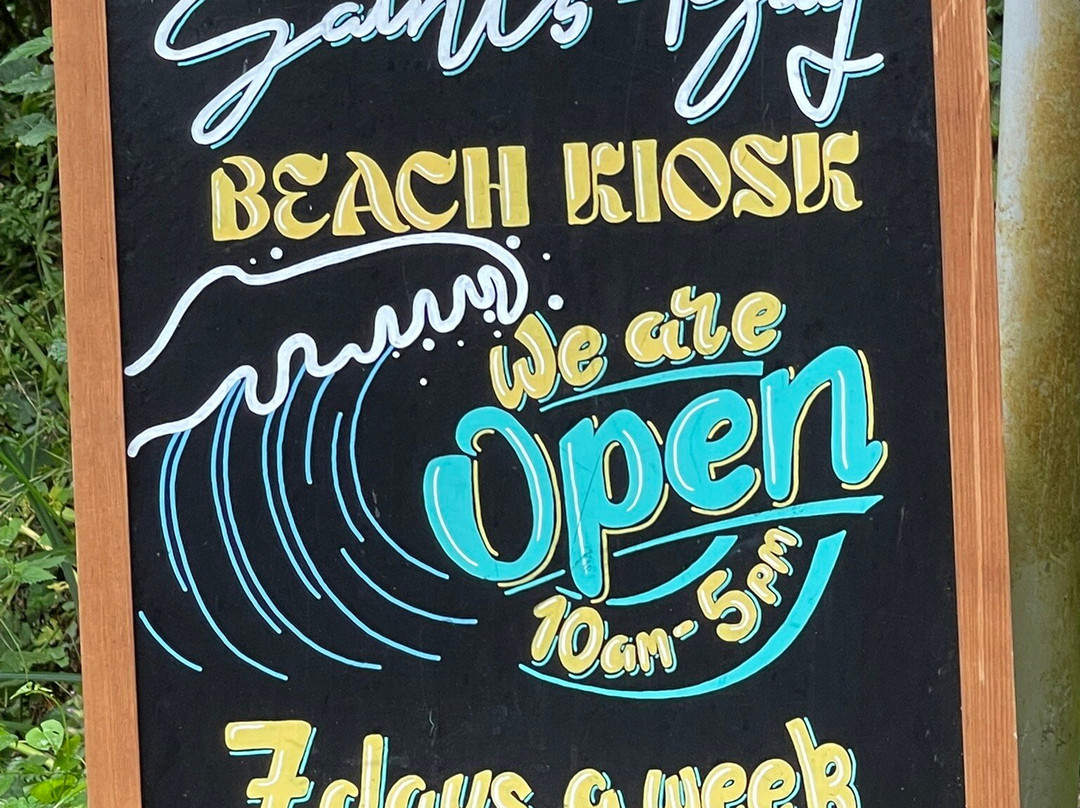 Saints Bay
BEACH KIOSK
We are
Open
10am-5pm
7 days a week